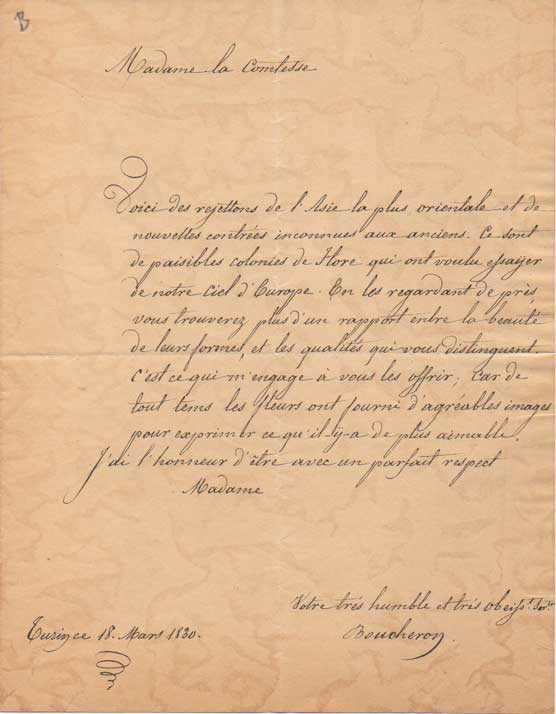 B
Madame la Comtesse
Voici des rejettons de l'Asie la plus orientale et de
nouvettes contrées inconnues aux anciens. Ce sont
de paisibles colonies de Flore qui ont voulu essaÿer
de notre ciel d'Europe. En les regardant de près
vous trouverez plus d'un rapport entre la beauté
de leurs formes, et les qualités qui vous distinguent.
C'est ce qui m'engage à vous les offrir; car de
tout tems les fleurs ont fourni d'agréables images
pour exprimer ce qu'il ÿ-a de plus aimable.
J'ai l'honneur d'être avec un parfait respect
Madame
Votre très humble et très obeisst. Servr.
Turin ce 18. Mars 1830.
Boucheron.